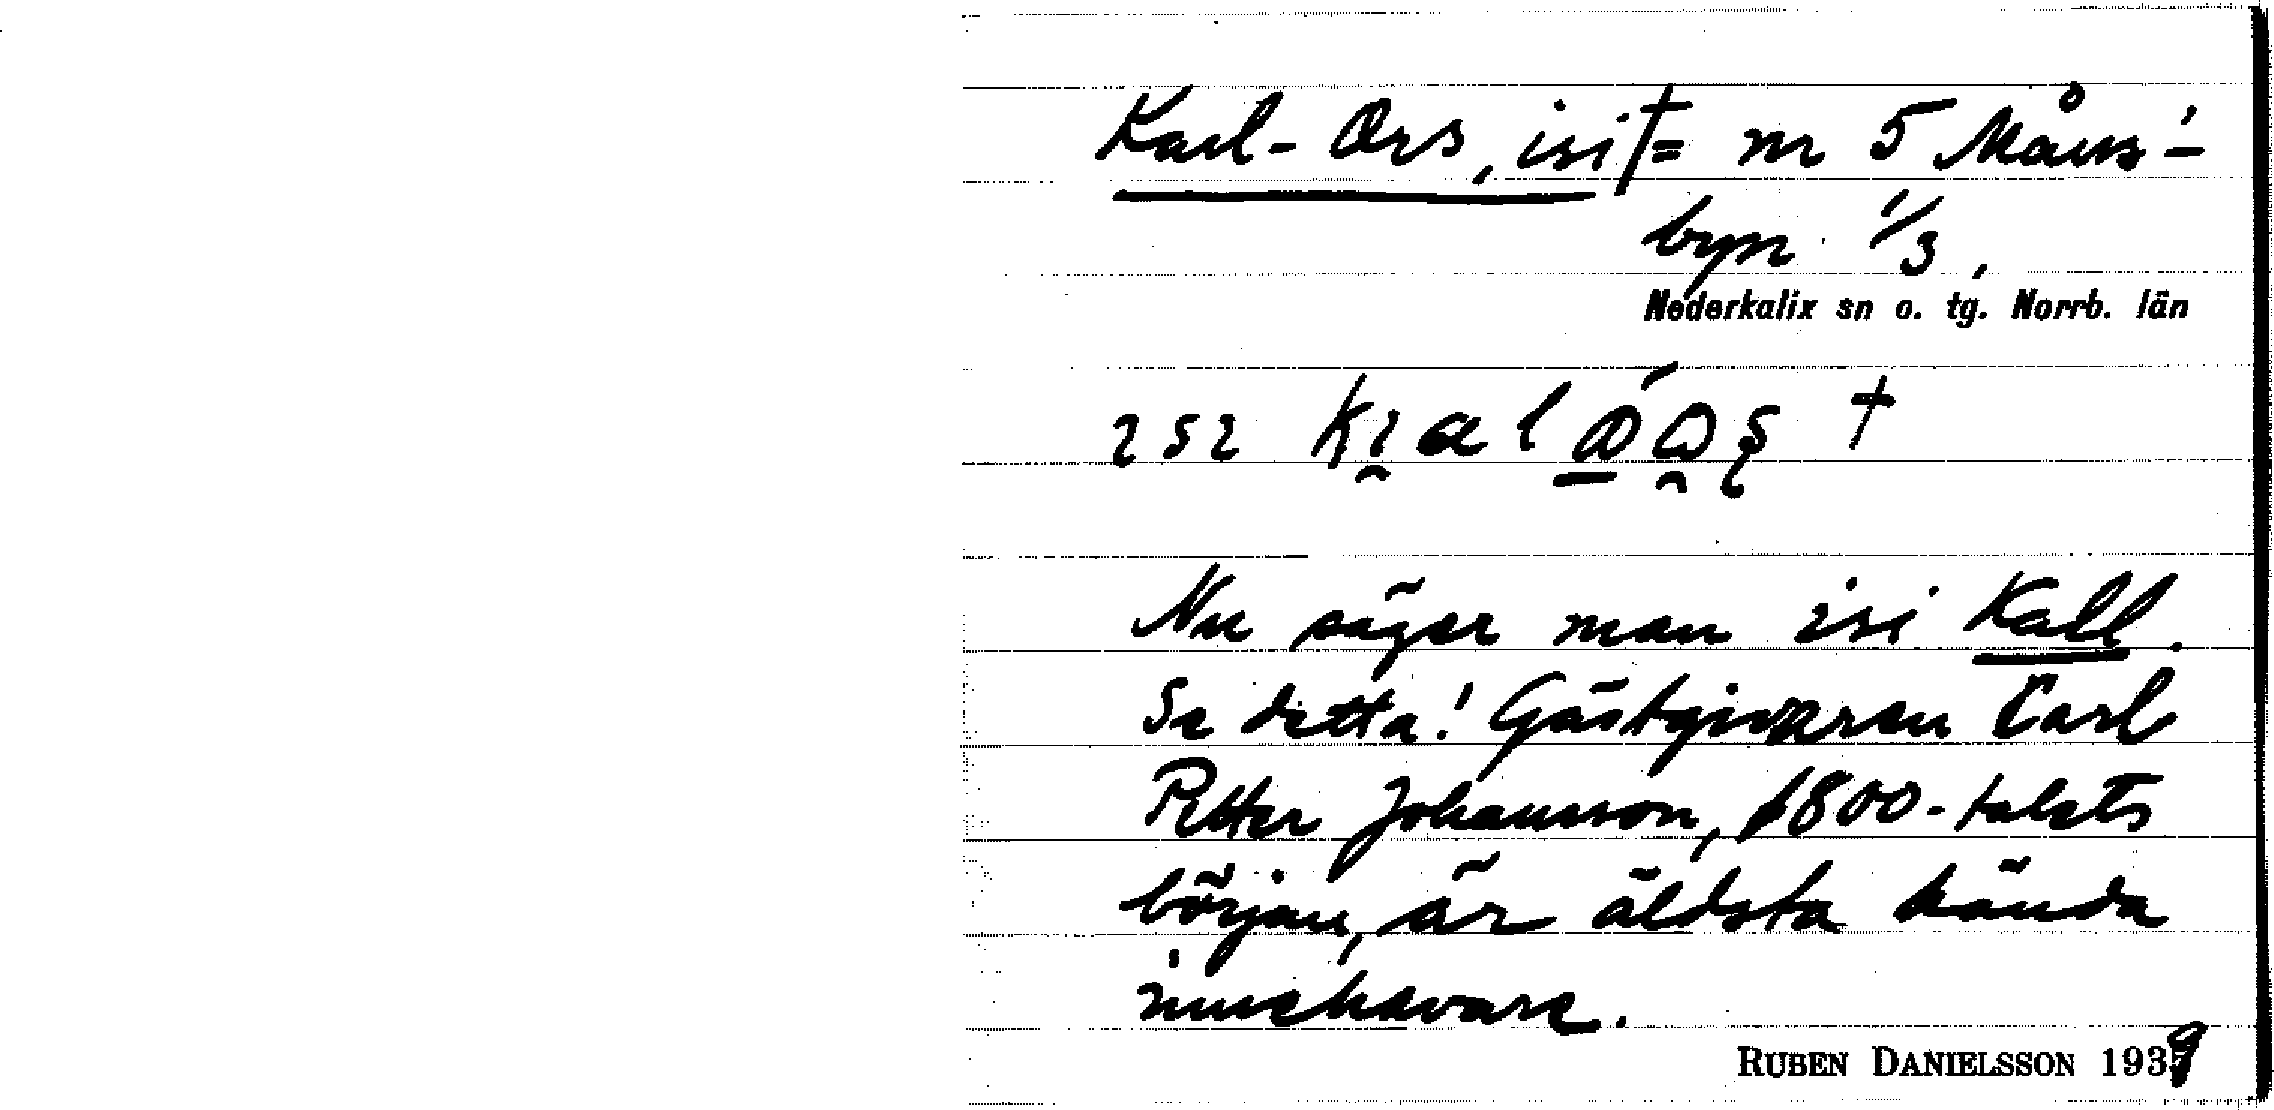 Karl-Ors, isi † = nr 5 Måns-
byn 1/3,
Nederkalix sn o. tg. Norrb. län
†
Nu säger man isi Kall.
Se detta! Gästgivaren Carl
Petter Johansson, 1800-talets
början, är äldsta kända
innehavare.
RUBEN DANIELSSON 1939